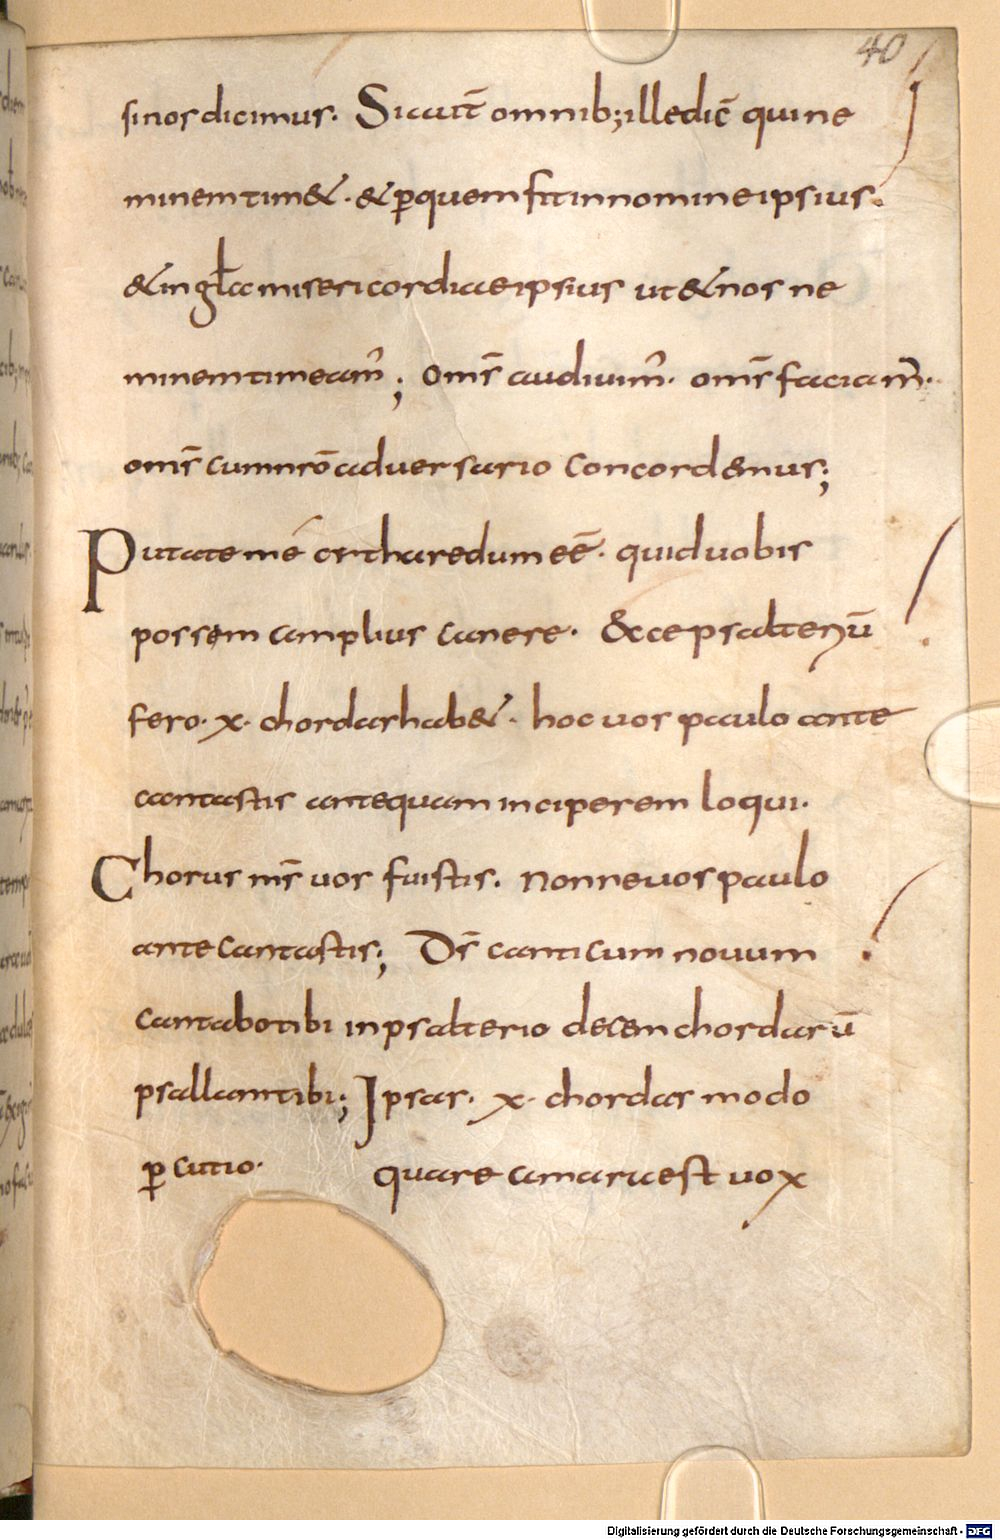 40
si nos dicimus. Sicut̄ omnib; ille dic̄ qui ne
minem tim&. & p̱ quem fit in nomine ipsius.
& in gl̄a misericordiae ipsius ut & nos ne
minem timeam̉; om̄s audiuim̉. om̄s faciam̉.
om̄s cum nr̄o aduersario concord&mus;
Putate mé cytharedum eē. quid uobis
possem amplius canere. Ecce psalteriū
fero. x. chordas hab&. hoc uos paulo ante
cantastis antequam inciperem loqui.
Chorus ms̄ uos fuistis. Nonne uos paulo
ante cantastis; Ds̄ canticum nouum
cantabo tibi in psalterio decem chordarū
psallam tibi; Ipsas. x. chordas modo
p̱cutio. quare amara est uox
Digitalisierung gefördert durch die Deutsche Forschungsgemeinschaft - DFG